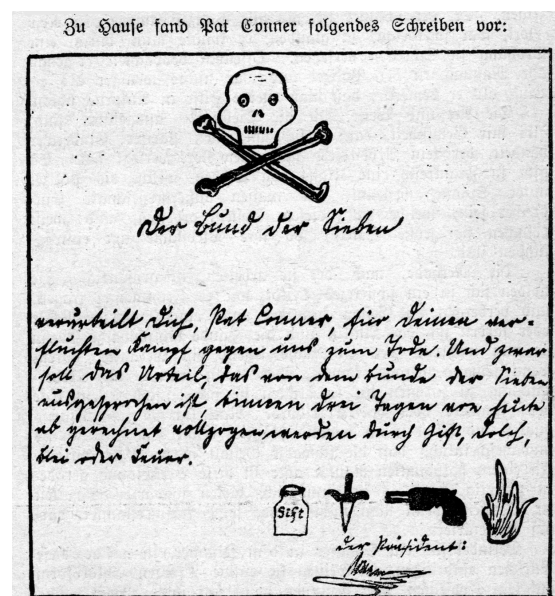 Zu Hause fand Pat Conner folgendes Schreiben vor:
Der Bund der Sieben
verurteilt Dich, Pat Conner, für Deinen ver-
fluchten Kampf gegen uns zum Tode. Und zwar
soll das Urteil, das von dem Bunde der Sieben
ausgesprochen ist, binnen drei Tagen von heute
ab gerechnet vollzogen werden durch Gift, Dolch,
Blei oder Feuer.
Gift
Der Präsident: